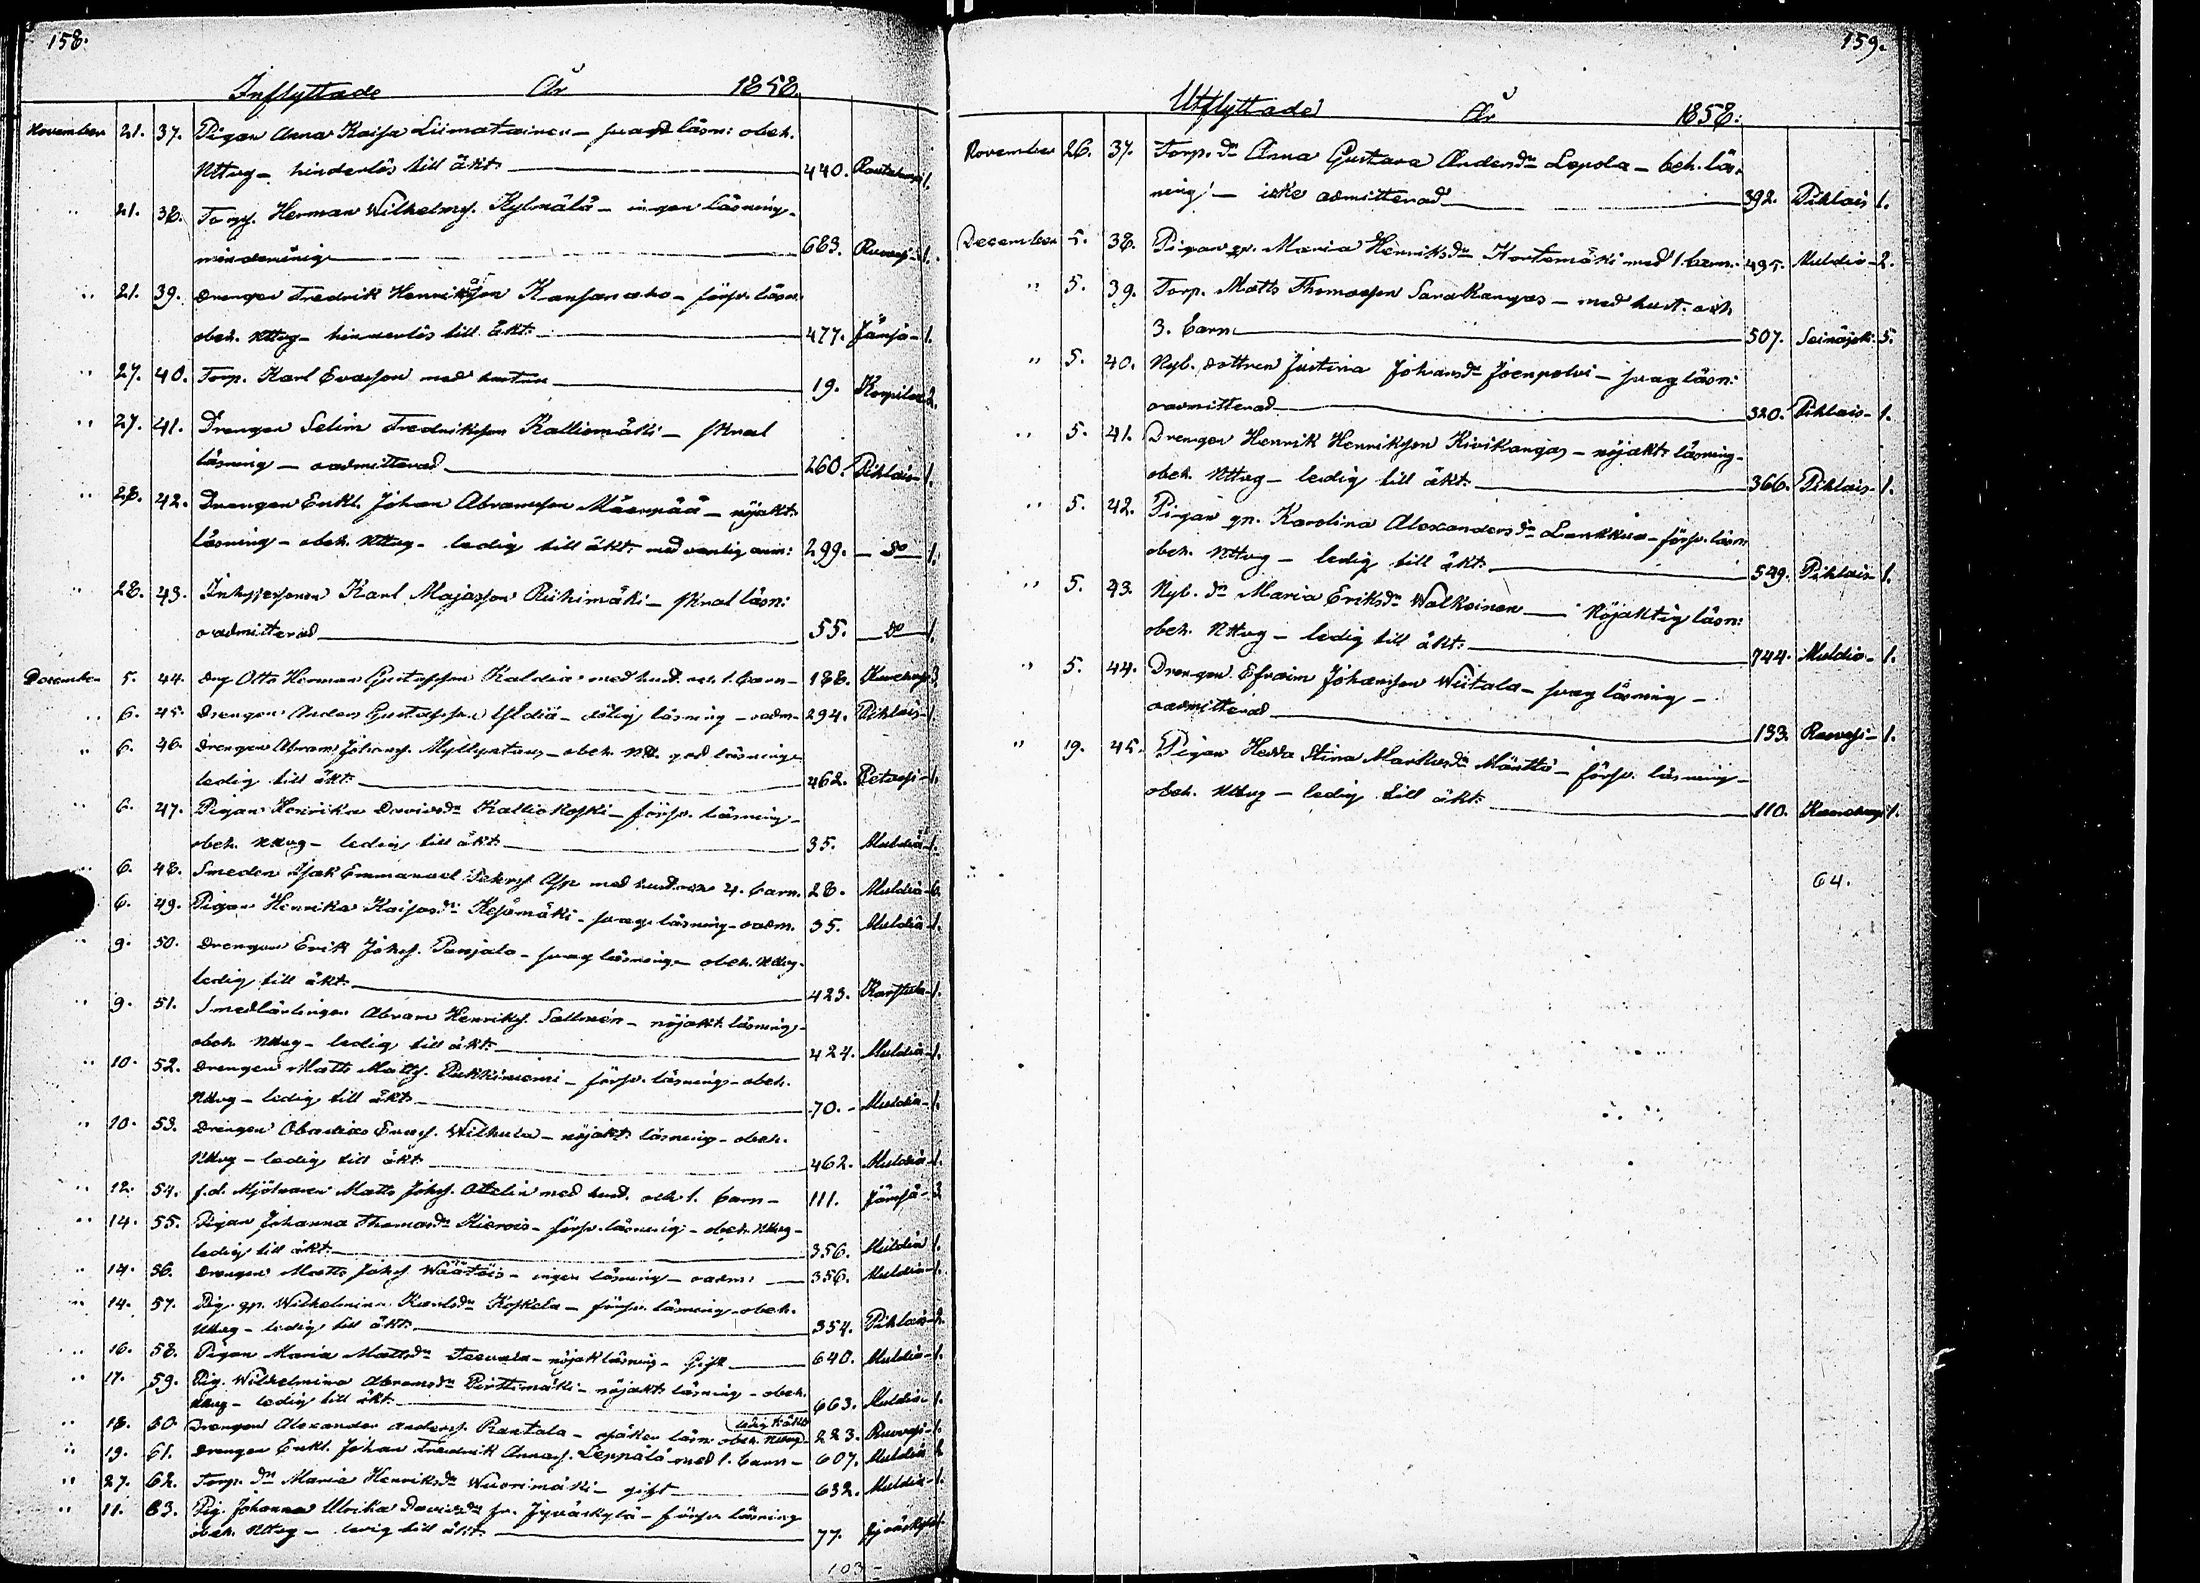 158.
Inflyttade År 1858.
November 21. 37. Pigan Anna Kaisa Liimatainen - svag läsn: obeh.
Nttvg - hinderlös till äkt: 440. Rautalampi 1.
" 21. 38. Torps. Herman Wilhelms. Kylmälä - ingen läsning -
minderårig 683. Ruovesi - 1.
" 21. 39. Drengen Fredrik Henriksson Kansanaho - försv. läsn:
obeh. Nttvg - hinderlös till äkt: 477. Jämsä - 1.
" 27. 40. Torp. Karl Evasson med hustru 19. Korpilax 2.
" 27. 41. Drengen Selim Fredriksson Kalliomäki - skral
läsning - oadmitterad 260. Pihlais - 1.
" 28. 42. Drengen Enkl. Johan Abramsson Mäenpää - nöjakt:
läsning - obeh. Nttvg - ledig till äkt: med vanlig anm: 299. - do - 1.
" 28. 43. Inhysessonen Karl Majasson Riihimäki - skral läsn:
oadmitterad 55. do 1.
December 5. 44. Drg Otto Herman Gustafsson Kaldia med hust. och 1. barn - 188. 3.
" 6. 45. Drengen Anders Gustafsson - dålig läsning - oadm - 294. Pihlais - 1.
" 6. 46. Drengen Abram Johans. - obeh. Ntt. god läsning -
ledig till äkt: 462. Petäjä - 1.
" 6. 47. Pigan Henrika Davidsdr Kalliokoski - försv. läsning -
obeh. Nttvg - ledig till äkt: 35. Muldiä - 1.
" 6. 48. Smeden Isak Emmanuel Asp med hust. och 4. barn. 28. Muldiä - 6.
6. 49. Pigan Henrika Kaisasdr - svag läsning - oadm. 35. Muldiä - 1.
" 9. 50. Drengen Erik Johs. - svag läsning - obeh. Nttvg -
ledig till äkt: 423. Karstula - 1.
" 9. 51. Smedlärlingen Abram Henriks. Sallmén - nöjakt. läsning -
obeh. Nttvg - ledig till äkt: 424. Muldiä - 1.
" 10. 52. Drengen Matts Matts. Pukkiniemi - försv. läsning - obeh.
Nttvg - ledig till äkt: 70. - Muldiä - 1.
" 10. 53. Drengen Abadias - nöjakt: läsning - obeh.
Nttvg - ledig till äkt: 462. Muldiä - 1.
" 12. 54. f.d. Mjölnaren Matts Johs. Ottelin med hust. och 1. barn - 111. Jämsä - 3.
" 14. 55. Pigan Johanna Thomasdr - försv. läsning - obeh. Nttvg -
ledig till äkt: 356. Muldiä 1.
" 14. 56. Drengen Matts Johs. - ingen läsning - oadm: 356. Muldiä - 1.
" 14. 57. Pig. qv. Wilhelmina Karlsdr Koskela - försv. läsning - obeh.
Nttvg - ledig till äkt: 354. Pihlais - 2.
" 16. 58. Pigan Maria Mattsdr - nöjakt läsning - Gift 640. Muldiä - 1.
" 17. 59. Pig. Wilhelmina Abramsdr Perttimäki - nöjakt. läsning - obeh.
Nttvg - ledig till äkt: 663. Muldiä - 1.
ledig t. äkt
" 18. 60. Drengen Alexander Anders. Rantala - läsn: obeh. Nttvg - 223. Ruovesi - 1.
" 19. 61. Drengen Enkl. Johan Fredrik Annas. Leppälä med 1. barn - 607. Muldiä 2.
" 27. 62. Torp. dr Maria Henriksdr Wuorimäki - gift 632. Muldiä - 1.
" 11. 63. Pig. Johanna Ulrika Davidsdr fr. Jyväskylä - försv. läsning
obeh. Nttvg - ledig till äkt: 77. Jyväskylä 1.
103 -
159.
Utflyttade År 1858:
November 26. 37. Torp. dr Anna Gustava Andersdr Lepola - beh. läs-
ning - icke admitterad 392. Pihlais 1.
December 5. 38. Pigan qv. Maria Henriksdr Kortemäki med 1. barn - 495. Muldia - 2.
" 5. 39. Torp. Matts Thomasson Sarakangas - med hust. och
3. barn 507. Seinäjok: 5.
" 5. 40. Nyb. dottren Justina Johansdr Joenpolvi - svag läsn:
oadmitterad 320. Pihlais - 1.
" 5. 41. Drengen Henrik Henriksson Kivikangas - nöjakt: läsning -
obeh. Nttvg - ledig till äkt: 366. Pihlais - 1.
" 5. 42. Pigan qv. Karolina Alexandersdr - försv. läsn:
obeh. Nttvg - ledig till äkt: 549. Pihlais - 1.
" 5. 43. Nyb. dr Maria Eriksdr Walkoinen - Nöjaktig läsn:
obeh. Nttvg - ledig till äkt: 744. Muldia - 1.
" 5. 44. Drengen Efraim Johansson Wiitala - svag läsning -
oadmitterad 133. Ruovesi - 1.
" 19. 45. Pigan Hedda Stina Markusdr Mänttä - försv. läsning -
obeh. Nttvg - ledig till äkt: 110. 1.
64.